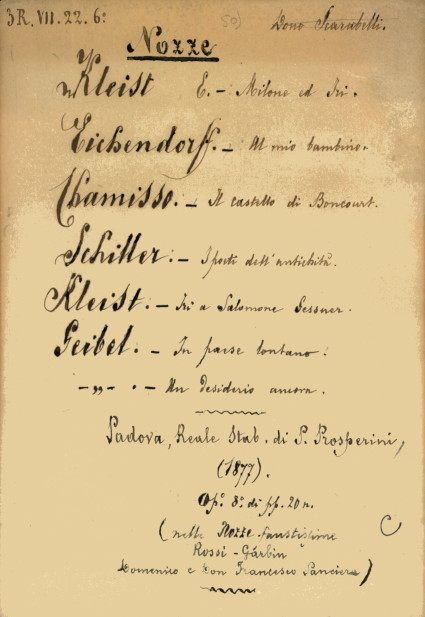 3R. VII. 22. 6º
50)
Dono Scarabelli.
Nozze
Kleist E. - Milone ed Iri.
Eichendorff. - Al mio bambino.
Chamisso. - Il castello di Boncourt.
Schiller. - I poeti dell'antichità.
Kleist. - Iri a Salomone Gessner.
Geibel. - In paese lontano.
- „ - . - Un desiderio ancora.
Padova, Reale Stab. di P. Prosperini,
(1877).
Opº. 8º. di pp. 20 n.
(nelle Nozze faustissime
Rossi - Gárbin
Domenico e Don Francesco Panciera)
C